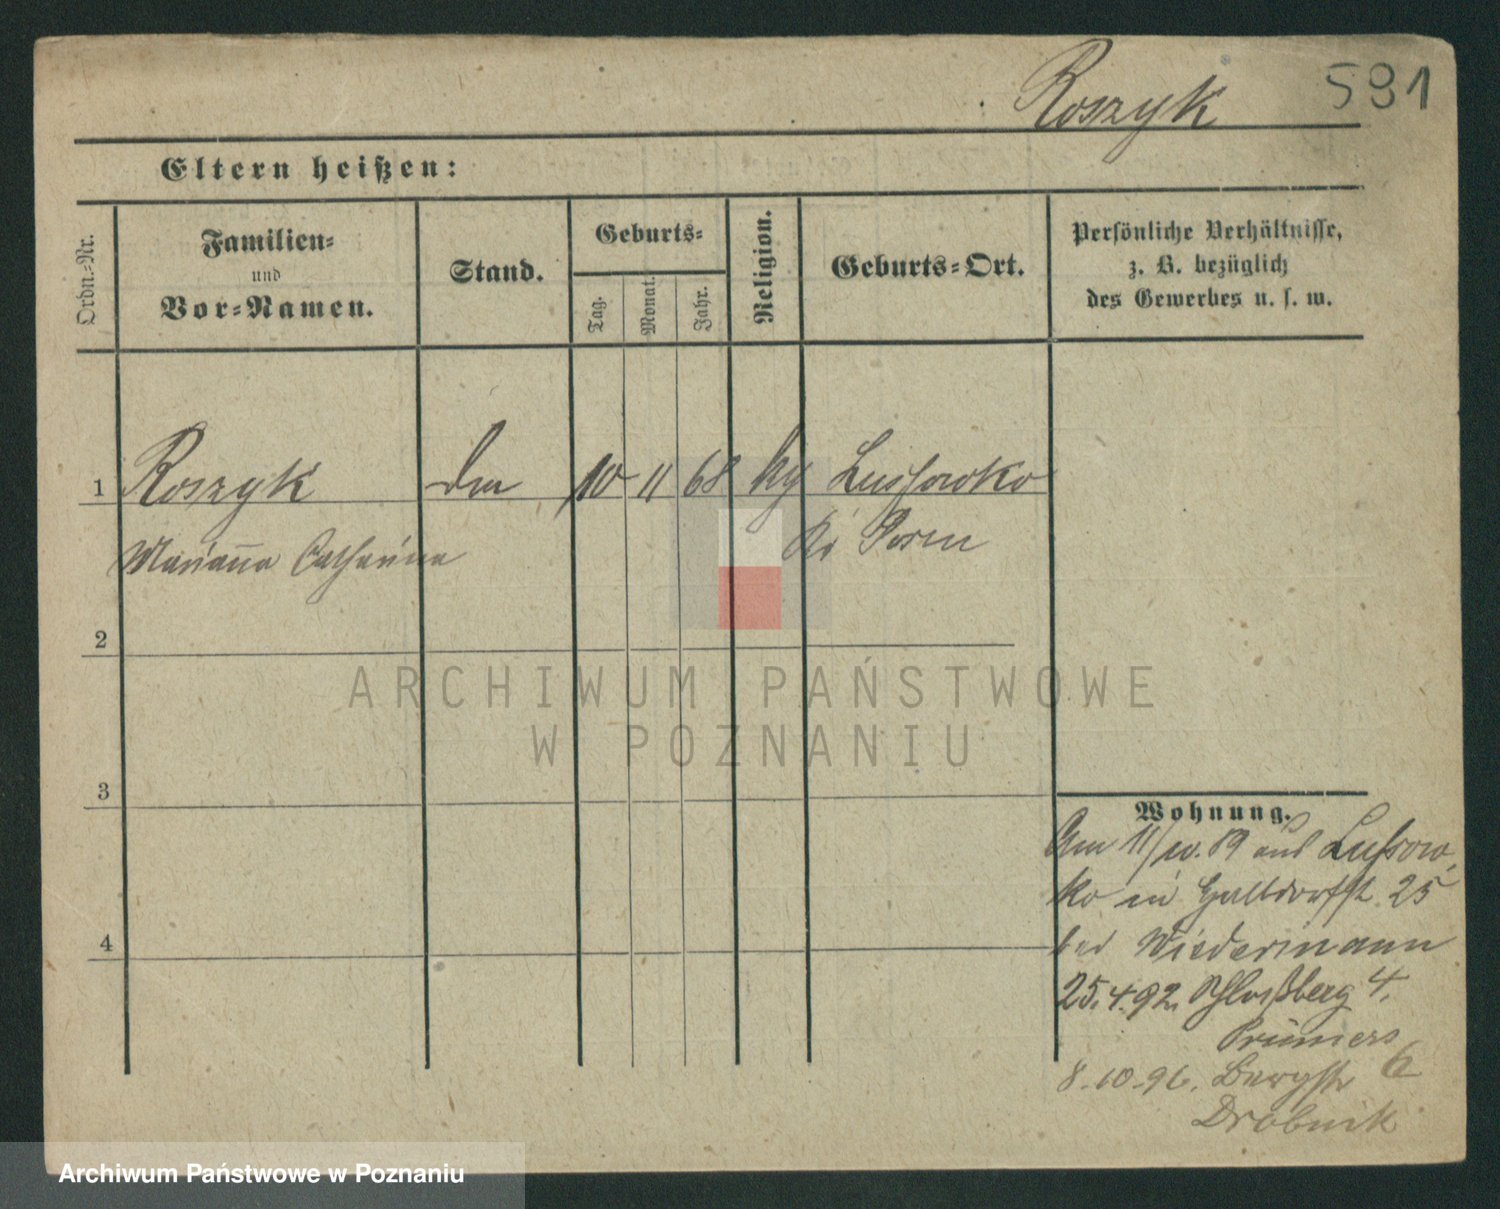 Roszyk 591
Eltern heißen:
Ordn.-Nr.
Familien-
und
Vor-Namen.
Stand.
Geburts-
Tag.
Monat.
Jahr.
Religion.
Geburts-Ort.
Persönliche Verhältnisse,
z. B. bezüglich
des Gewerbes u. s. w.
1 Roszyk 10 11 68 Lussowko
Marianna Catharina Kr Posen
2
3
4
Wohnung.
Am 11/10. 89 aus Lussow-
ko in Halbdorfst. 25
bei Wiedermann
25.4.92. Schloßberg 4.
Prümers
8.10.96. Bergstr 6
Drobnik
ARCHIWUM PAŃSTWOWE
W POZNANIU
Archiwum Państwowe w Poznaniu